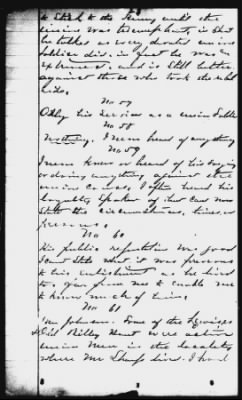 to Stick to the Army until the
union was triumphant, is that
he talked as every devoted union
soldier did. in fact he was in
extremest. and is still bitter
against those who took the rebel
side.
No 57
Only his services as a union Soldier
No 58
Nothing. I never heard of anything
No 59
I never knew or heard of his saying
or doing anything against the
union cause. I often heard his
loyalty spoken of but can now
state the circumstances, times, or
persons.
No 60
His public reputation was good
I can't state what it was previous
to his enlistment as he lived
too far from me to enable me
to know much of him.
No 61
Wm Johnson. Some of the
and Riley Hunt were active
union men in the locality
where Mr Sharp lived. I had